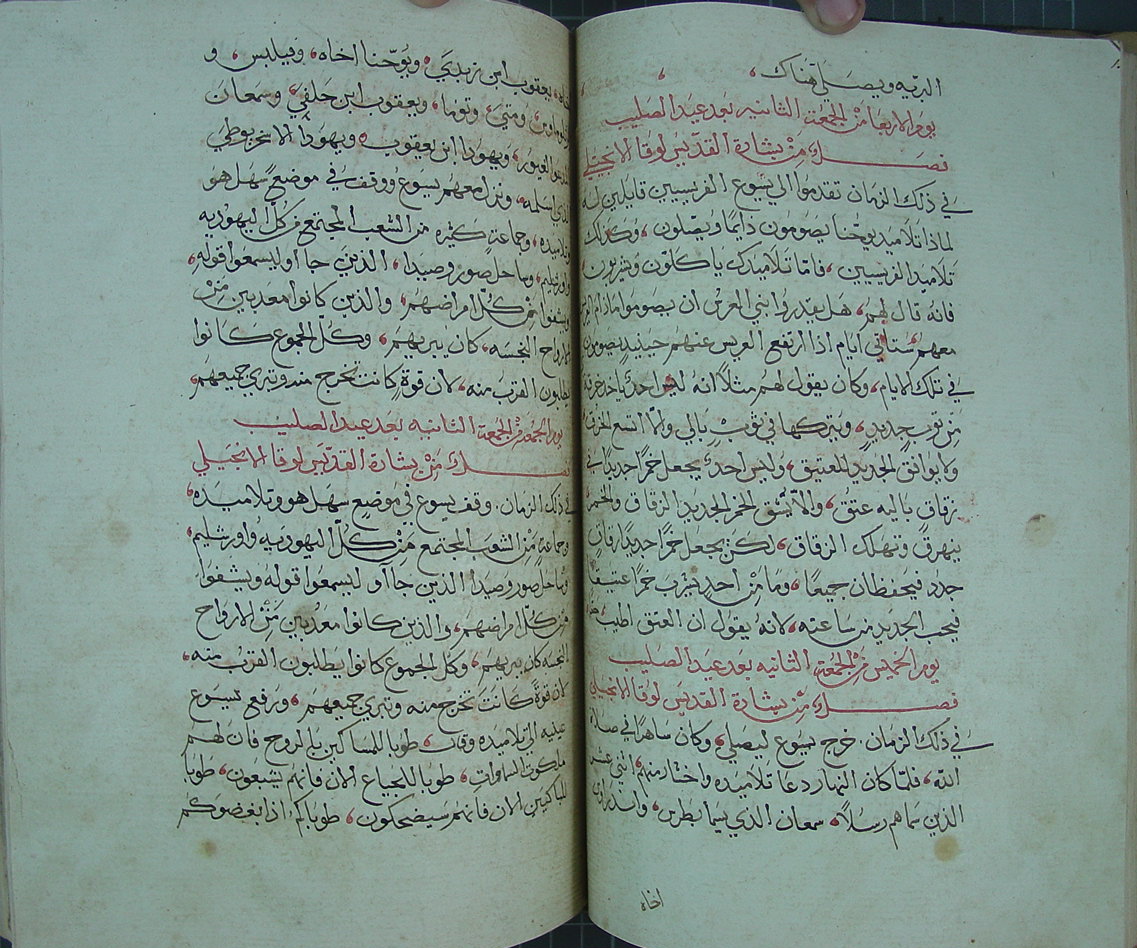 البريه ويصلي هناك
يوم الاربعا من الجمعة الثانيه بعد عيد الصليب
فصل من بشارة القديس لوقا الانجيلي
في ذلك الزمان تقدموا الي يسوع الفريسيين قايلين له
لماذا تلاميد يوحنا يصومون دايما ويصلون، وكذلك
تلاميد الفريسيين، فاما تلاميدك ياكلون ويشربون
فانه قال لهم، هل يقدروا بني العرس ان يصوموا ماذام
معهم ستاتي ايام اذا ارتفع العريس عنهم حينيذ يصومون
في تلك الايام، وكان يقول لهم مثلاً انه ليس احد ياخد خرقه
من توب جديد، ويتركها في توب بالي والا اتسع الخرق
ولا يوافق الجديد للعتيق، وليس احد يجعل خمرًا جديدًا في
زقاق باليه عتق، والا تشق الخمر الجديد الزقاق والخمر
يهرق وتهلك الزقاق، لكن يجعل خمرًا جديدًا زقاق
جدد فيحفظان جميعا، وما من احد يشرب خمرًا عتيقا
فيحب الجديد من ساعته، لانه يقول ان العتق اطيب
يوم الخميس من الجمعة الثانيه بعد عيد الصليب
فصل من بشارة القديس لوقا الانجيلي
في ذلك الزمان، خرج يسوع ليصلي، وكان ساهرًا في صلاة
الله، فلما كان النهار دعا تلاميده واختار منهم اثني عشر
الذين سماهم رسلاً، سمعان الذي يسما بطرس، واندراوس
اخاه
اخاه، يعقوب ابن زبدي، ويوحنا اخاه، وفيلبس، و
ومتي، وتوما، ويعقوب ابن حلفي، وسمعان
الغيور، ويهودا ابن يعقوب، ويهودا الاسخريوطي
الذي اسلمه، ونزل معهم يسوع ووقف في موضع سهل هو
وتلاميده، وجماعة كثيره من الشعب المجتمع من كل اليهوديه
واورشليم، وساحل صور وصيدا، الذين جااو ليسمعوا قوله
ويشفوا من كل امراضهم، والذين كانوا معدبين من
الارواح النجسه، كان يبريهم، وكل الجموع كانوا
يطلبون القرب منه، لان قوة كانت تخرج منه وتبري جميعهم
يوم الجمعة من الجمعة الثانيه بعد عيد الصليب
فصل من بشارة القديس لوقا الانجيلي
في ذلك الزمان، وقف يسوع في موضع سهل هو وتلاميده
وجماعة من الشعب المجتمع من كل اليهوديه واورشليم،
وساحل صور وصيدا الذين جااو ليسمعوا قوله ويشفوا
من كل امراضهم، والذين كانوا معدبين من الارواح
النجسه كان يبريهم، وكل الجموع كانوا يطلبون القرب منه
لان قوة كانت تخرج منه وتبري جميعهم، ورفع يسوع
عينيه الي تلاميده وقال، طوبا للمساكين بالروح فان لهم
ملكوت السماوات، طوبا للجياع الان فانهم يشبعون، طوبا
للباكيين الان فانهم سيضحكون، طوباكم اذا ابغضوكم